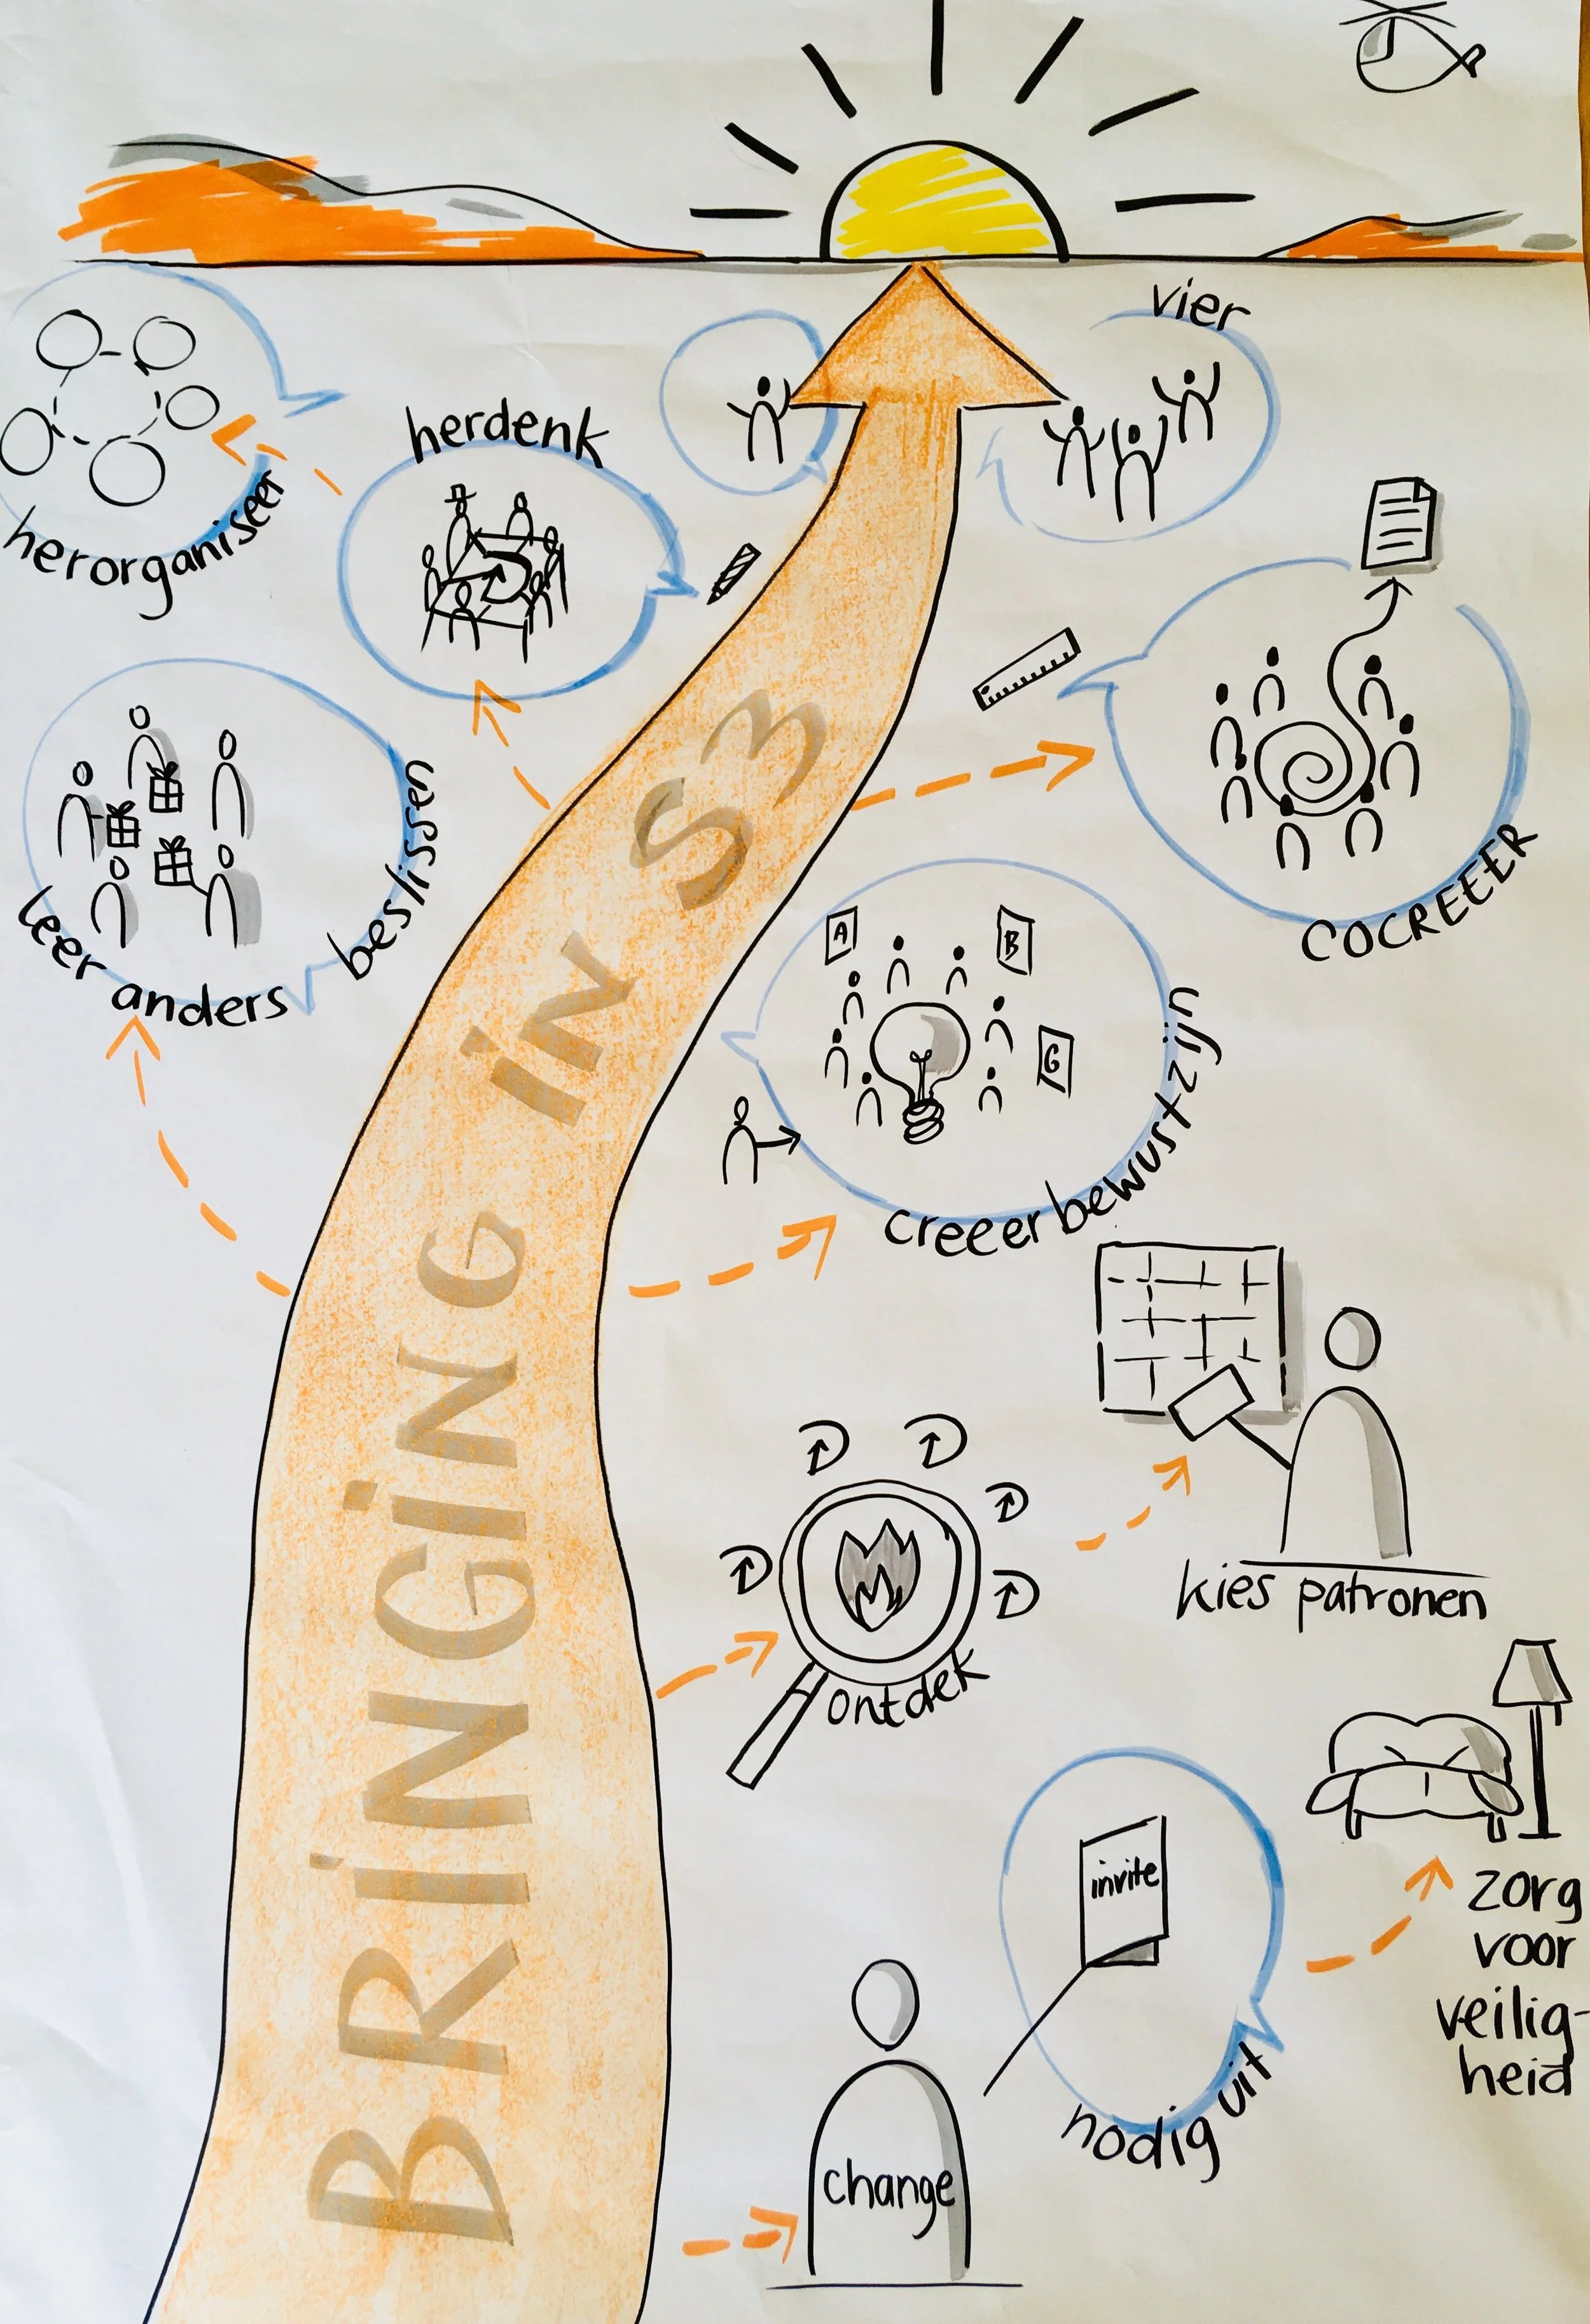 vier
herdenk
herorganiseer
COCREEER
leer anders beslissen
A
B
G
creeer bewustzijn
BRINGING IN S3
kies patronen
ontdek
invite
nodig uit
zorg
voor
veilig-
heid
change